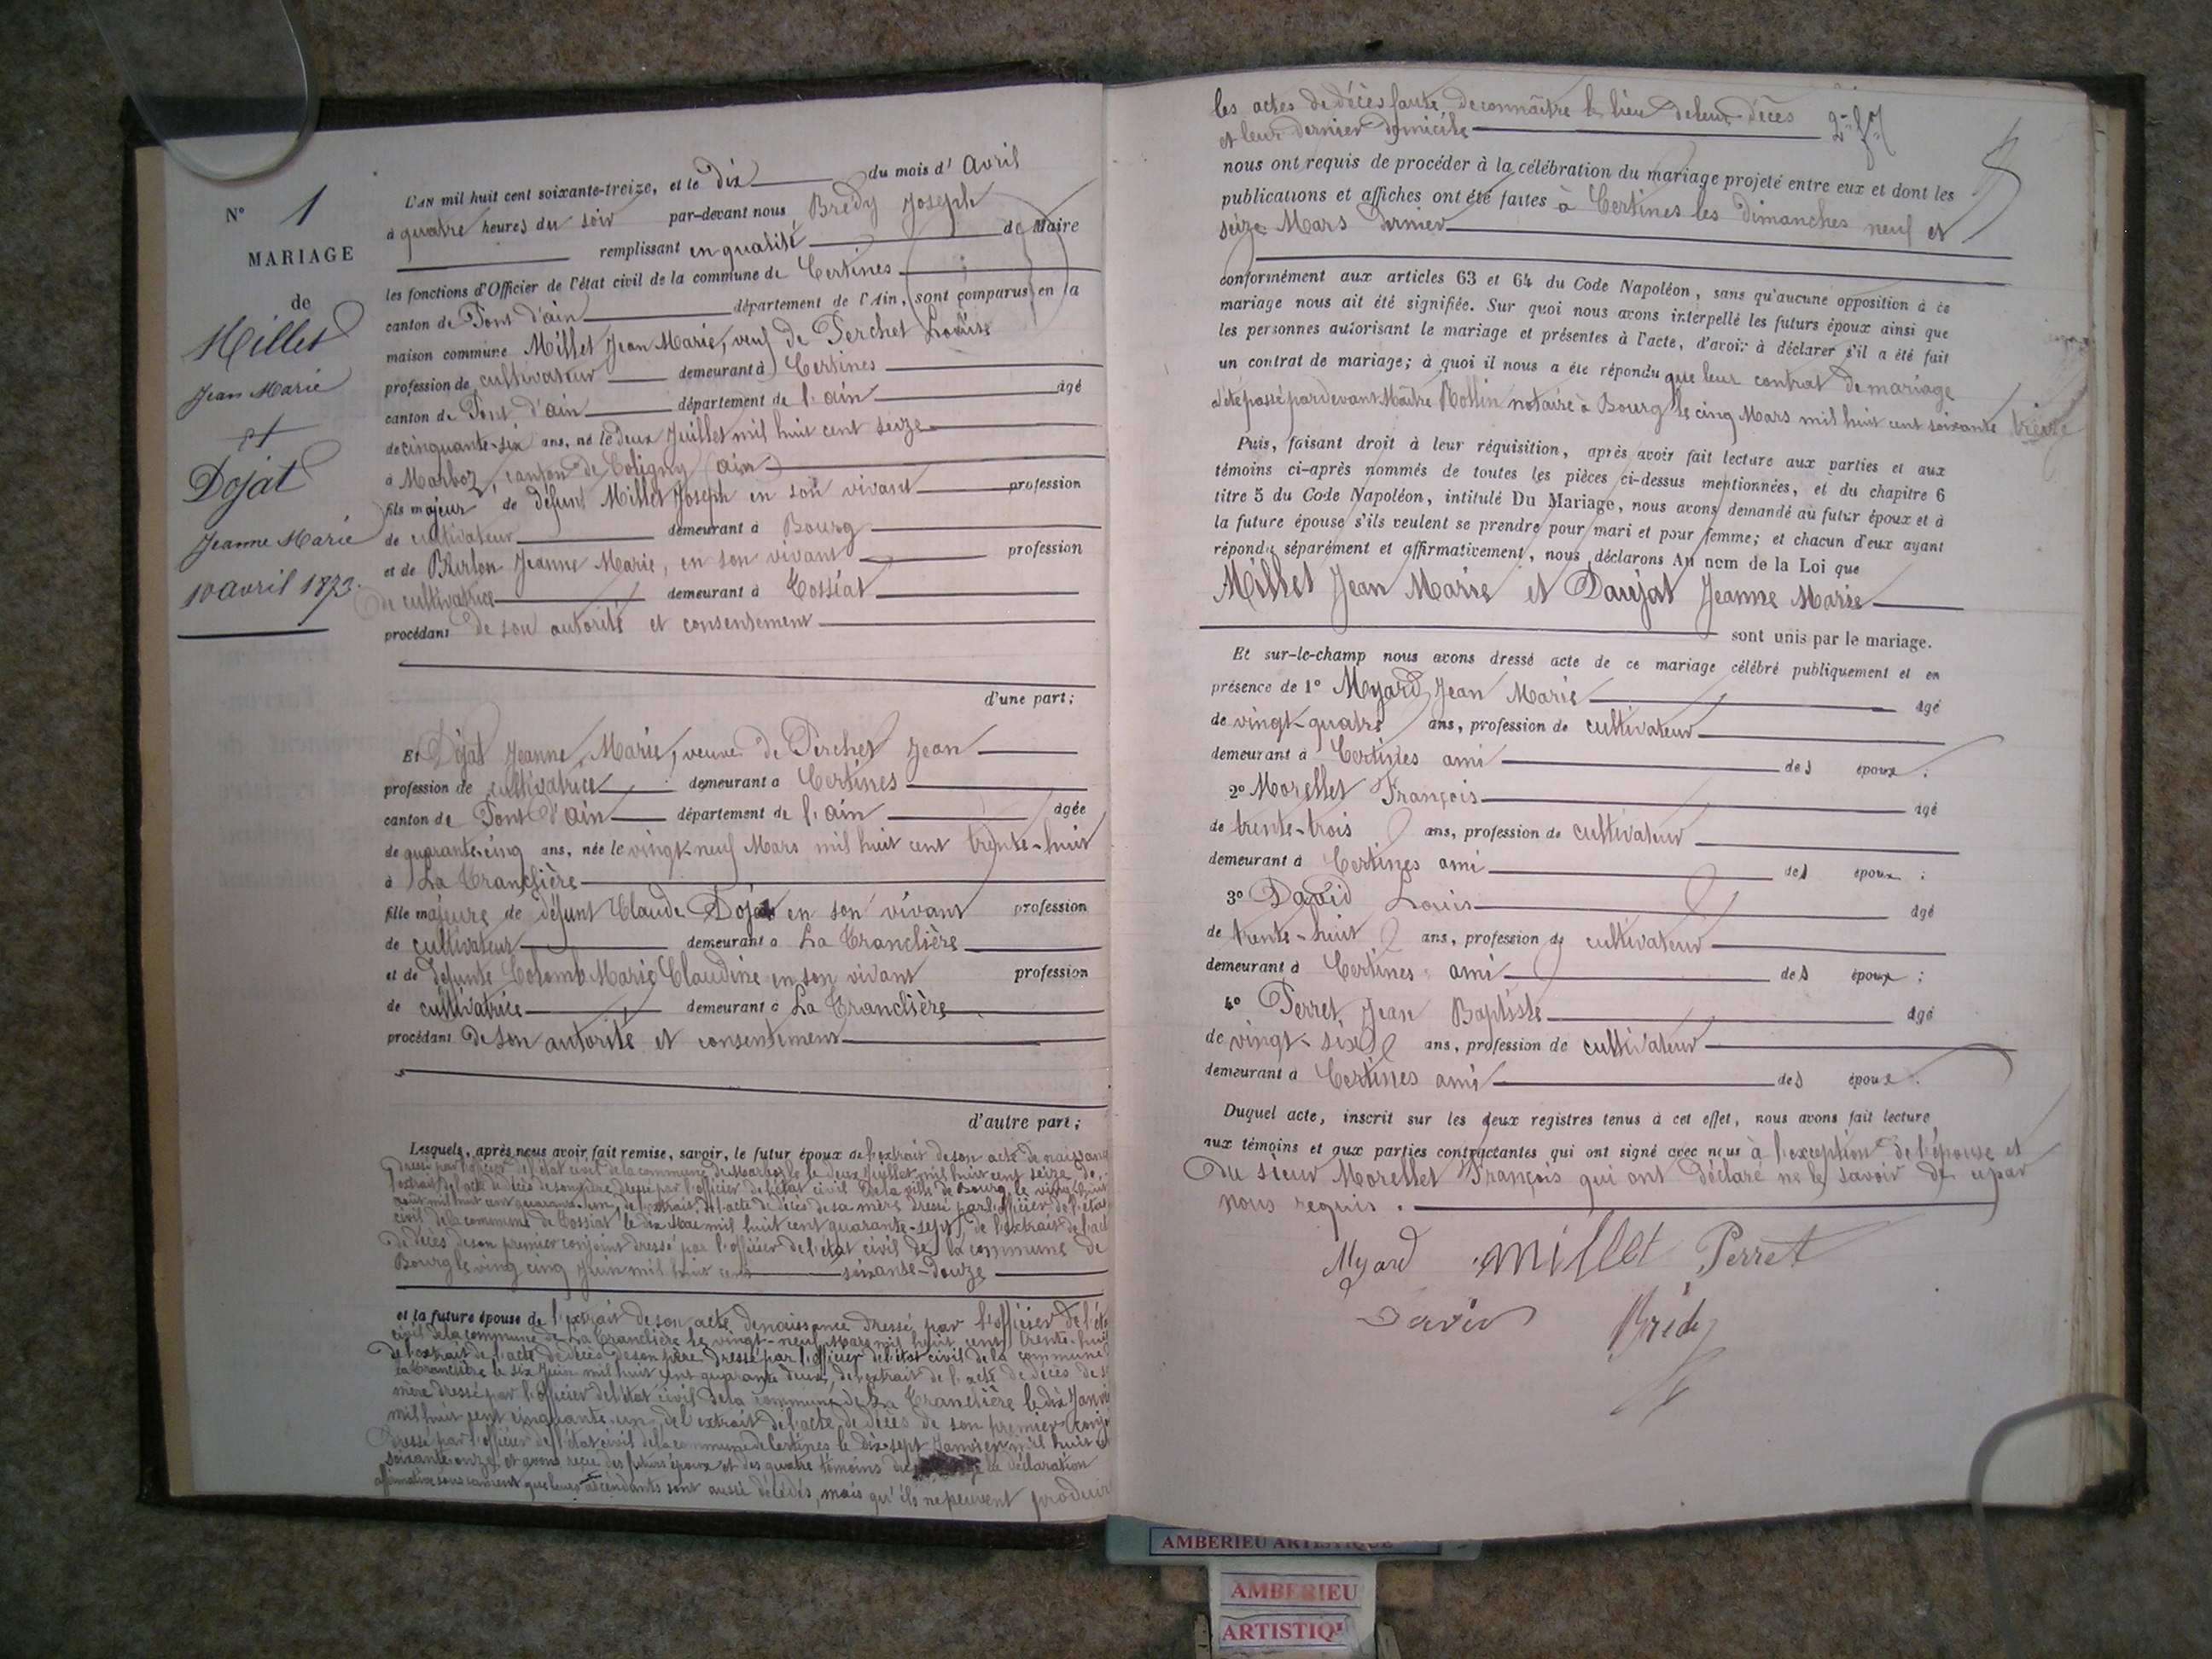 N° 1
MARIAGE
de
Millet
Jean Marie
et
Dojat
Jeanne Marie
10 avril 1873.
L'AN mil huit cent soixante-treize, et le Dix du mois d' Avril
à quatre heures du soir par-devant nous Brédy Joseph
remplissant en qualité de Maire
les fonctions d'Officier de l'état civil de la commune de Certines
canton de Pont d'ain département de l'Ain, sont comparus en la
maison commune Millet Jean Marie, veuf de Perchet Louise
profession de cultivateur demeurant à Certines
canton de Pont d'ain département de l'ain âgé
de cinquante-six ans, né le deux Juillet mil huit cent seize
à Marboz, canton de Coligny (ain)
fils majeur de défunt Millet Joseph en son vivant profession
de cultivateur demeurant à Bourg
et de Jeanne Marie, en son vivant profession
de cultivatrice demeurant à Tossiat
procédant de son autorité et consentement
d'une part;
Et Dojat Jeanne Marie, veuve de Perchet Jean
profession de cultivatrice demeurant à Certines
canton de Pont d'Ain département de l'ain âgée
de quarante-cinq ans, née le vingt-neuf Mars mil huit cent trente-huit
à La Tranclière
fille majeure de défunt Claude Dojat en son vivant profession
de cultivateur demeurant à La Tranclière
et de défunte Colomb Marie Claudine en son vivant profession
de cultivatrice demeurant à La Tranclière
procédant de son autorité et consentement
d'autre part;
Lesquels, après nous avoir fait remise, savoir, le futur époux de l'extrait de son acte de naissance
dressé par l'officier de l'état civil de la commune de Marboz le deux Juillet mil huit cent seize de
l'extrait de l'acte de décès de son père dressé par l'officier de l'état civil de la ville de Bourg le vingt-huit
mil huit cent quarante-un, de l'extrait de l'acte de décès de sa mère dressé par l'officier de l'état
civil de la commune de Tossiat le dix Mai mil huit cent quarante-sept, de l'extrait de l'acte
de décès de son premier conjoint dressé par l'officier de l'état civil de la commune de
Bourg le ving cinq Juin mil huit cent soixante-douze
et la future épouse de l'extrait de son acte de naissance dressé par l'officier de l'état
civil de la commune de La Tranclière le vingt-neuf Mars mil huit cent trente-huit
de l'extrait de l'acte de décès de son père dressé par l'officier de l'état civil de la commune
La Tranclière le six Juin mil huit cent quarante deux, de l'extrait de l'acte de décès de sa
mère dressé par l'officier de l'état civil de la commune de La Tranclière le dix Janvier
mil huit cent cinquante-un, de l'extrait de l'acte de décès de son premier conjoint
dressé par l'officier de l'état civil de la commune de Certines le dix sept Janvier mil huit cent
soixante-onze et avons reçu des futurs époux et des quatre témoins la déclaration
affirmative sous serment que leurs ascendants sont aussi décédés, mais qu'ils ne peuvent produire
les actes de décès faute de connaître le lieu de leur décès
et leur dernier domicile
nous ont requis de procéder à la célébration du mariage projeté entre eux et dont les
publications et affiches ont été faites à Certines les dimanches neuf et
seize Mars Dernier
conformément aux articles 63 et 64 du Code Napoléon, sans qu'aucune opposition à ce
mariage nous ait été signifiée. Sur quoi nous avons interpellé les futurs époux ainsi que
les personnes autorisant le mariage et présentes à l'acte, d'avoir à déclarer s'il a été fait
un contrat de mariage; à quoi il nous a été répondu que leur contrat de mariage
a été passé pardevant Maître Rollin notaire à Bourg le cinq Mars mil huit cent soixante treize
Puis, faisant droit à leur réquisition, après avoir fait lecture aux parties et aux
témoins ci-après nommés de toutes les pièces ci-dessus mentionnées, et du chapitre 6
titre 5 du Code Napoléon, intitulé Du Mariage, nous avons demandé au futur époux et à
la future épouse s'ils veulent se prendre pour mari et pour femme; et chacun d'eux ayant
répondu séparément et affirmativement, nous déclarons Au nom de la Loi que
Millet Jean Marie et Daujat Jeanne Marie
sont unis par le mariage.
Et sur-le-champ nous avons dressé acte de ce mariage célébré publiquement et en
présence de 1° Myard Jean Marie âgé
de vingt-quatre ans, profession de cultivateur
demeurant à Certines ami des époux;
2° Morellet François âgé
de trente-trois ans, profession de cultivateur
demeurant à Certines ami des époux;
3° David Louis âgé
de trente-huit ans, profession de cultivateur
demeurant à Certines ami des époux;
4° Perret Jean Baptiste âgé
de vingt-six ans, profession de cultivateur
demeurant à Certines ami des époux.
Duquel acte, inscrit sur les deux registres tenus à cet effet, nous avons fait lecture
aux témoins et aux parties contractantes qui ont signé avec nous à l'exception de l'épouse et
du sieur Morellet François qui ont déclaré ne le savoir de ce par
nous requis.
Myard Millet Perret
David Brédy
AMBERIEU ARTISTIQUE
AMBERIEU
ARTISTIQ